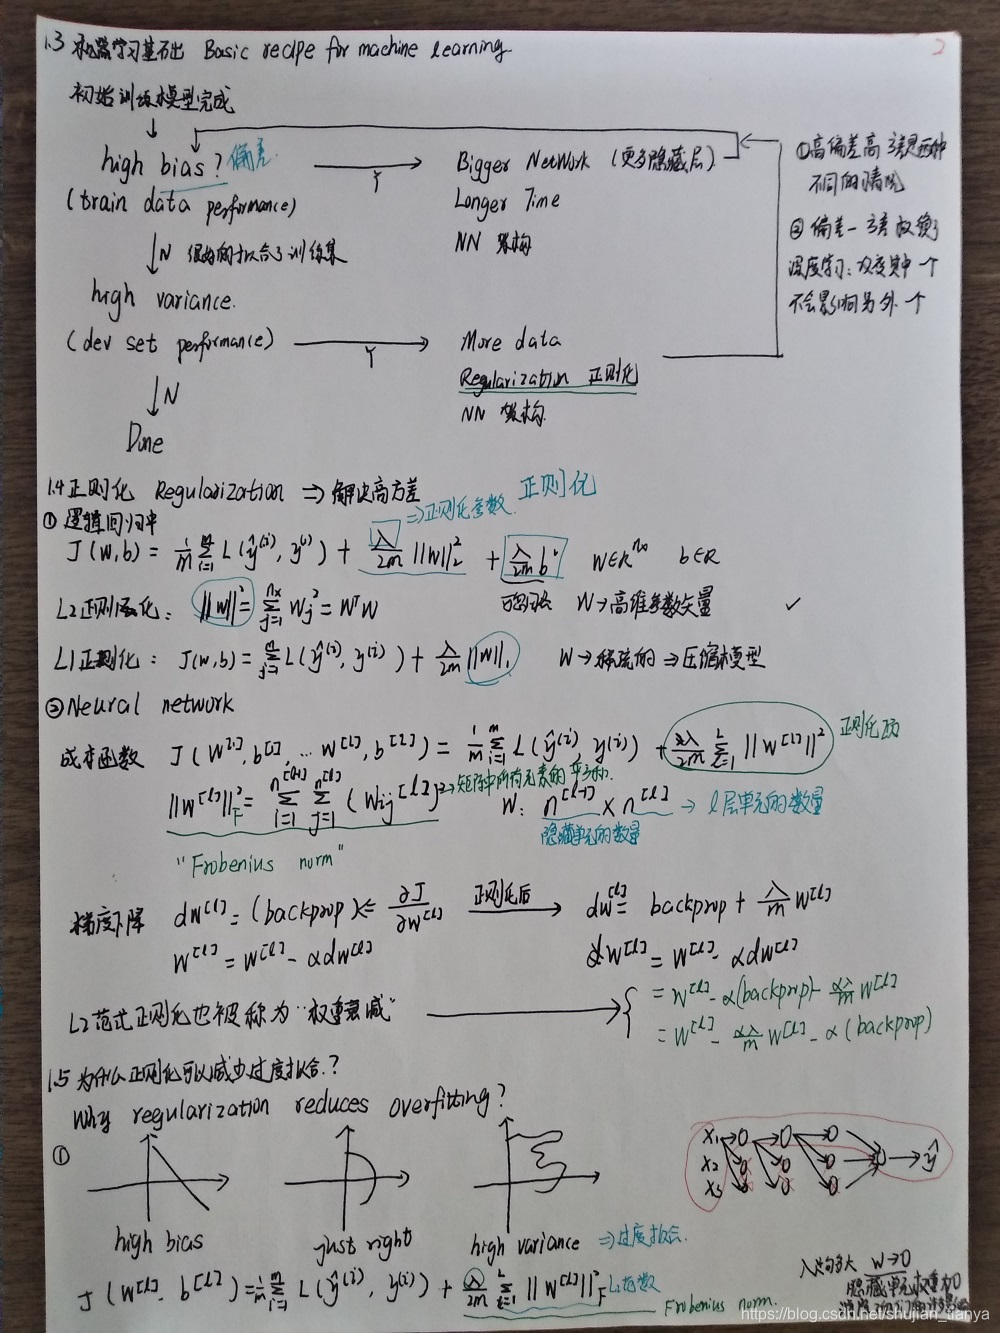 2
1.3 机器学习基础 Basic recipe for machine learning
初始训练模型完成
high bias? 偏差 Y Bigger NetWork (更多隐藏层)
(train data performance) Longer Time
N 很好的拟合了训练集 NN 架构
high variance.
(dev set performance) Y More data
Regularization 正则化
N NN 架构
Done
①高偏差高方差是两种
不同的情况
② 偏差-方差权衡
深度学习: 改变其中一个
不会影响另外一个
1.4 正则化 Regularization ⇒ 解决高方差 正则化
① 逻辑回归中 ⇒正则化参数
J(w,b) = 1/m Σ_{i=1}^{m} L(ŷ^(i), y^(i)) + λ/2m ||w||₂² + λ/2m b² W∈R^{nx} b∈R
L2正则化: ||w||² = Σ_{j=1}^{nx} Wj² = WᵀW 可忽略 W→高维参数矢量 ✓
L1正则化: J(w,b) = Σ_{j=1}^{m} L(ŷ^(i), y^(i)) + λ/2m ||w||₁ W→稀疏的⇒压缩模型
②Neural network
成本函数 J(W^[1], b^[1], ... W^[L], b^[L]) = 1/m Σ_{i=1}^{m} L(ŷ^(i), y^(i)) + λ/2m Σ_{l=1}^{L} ||W^[l]||² 正则化项
||W^[l]||_F² = Σ_{i=1}^{n^[l-1]} Σ_{j=1}^{n^[l]} (Wij^[l])² →矩阵中所有元素的平方和. W: n^[l-1] × n^[l] → l层单元的数量
隐藏单元的数量
"Frobenius norm"
梯度下降 dW^[l] = (backprop) ∂J/∂W^[l] 正则化后 dW^[l] = backprop + λ/m W^[l]
W^[l] = W^[l] - αdW^[l] W^[l] = W^[l] - αdW^[l]
L2范式正则化也被称为"权重衰减" = W^[l] - α(backprop) - αλ/m W^[l]
= W^[l] - αλ/m W^[l] - α(backprop)
1.5 为什么正则化可以减少过度拟合?
Why regularization reduces overfitting?
①
X₁
X₂
X₃
ŷ
high bias just right high variance ⇒过度拟合.
J(W^[l], b^[l]) = 1/m Σ_{i=1}^{m} L(ŷ^(i), y^(i)) + λ/2m Σ_{l=1}^{L} ||W^[l]||_F²
Frobenius norm.
W→0
https://blog.csdn.net/shujian_tianya